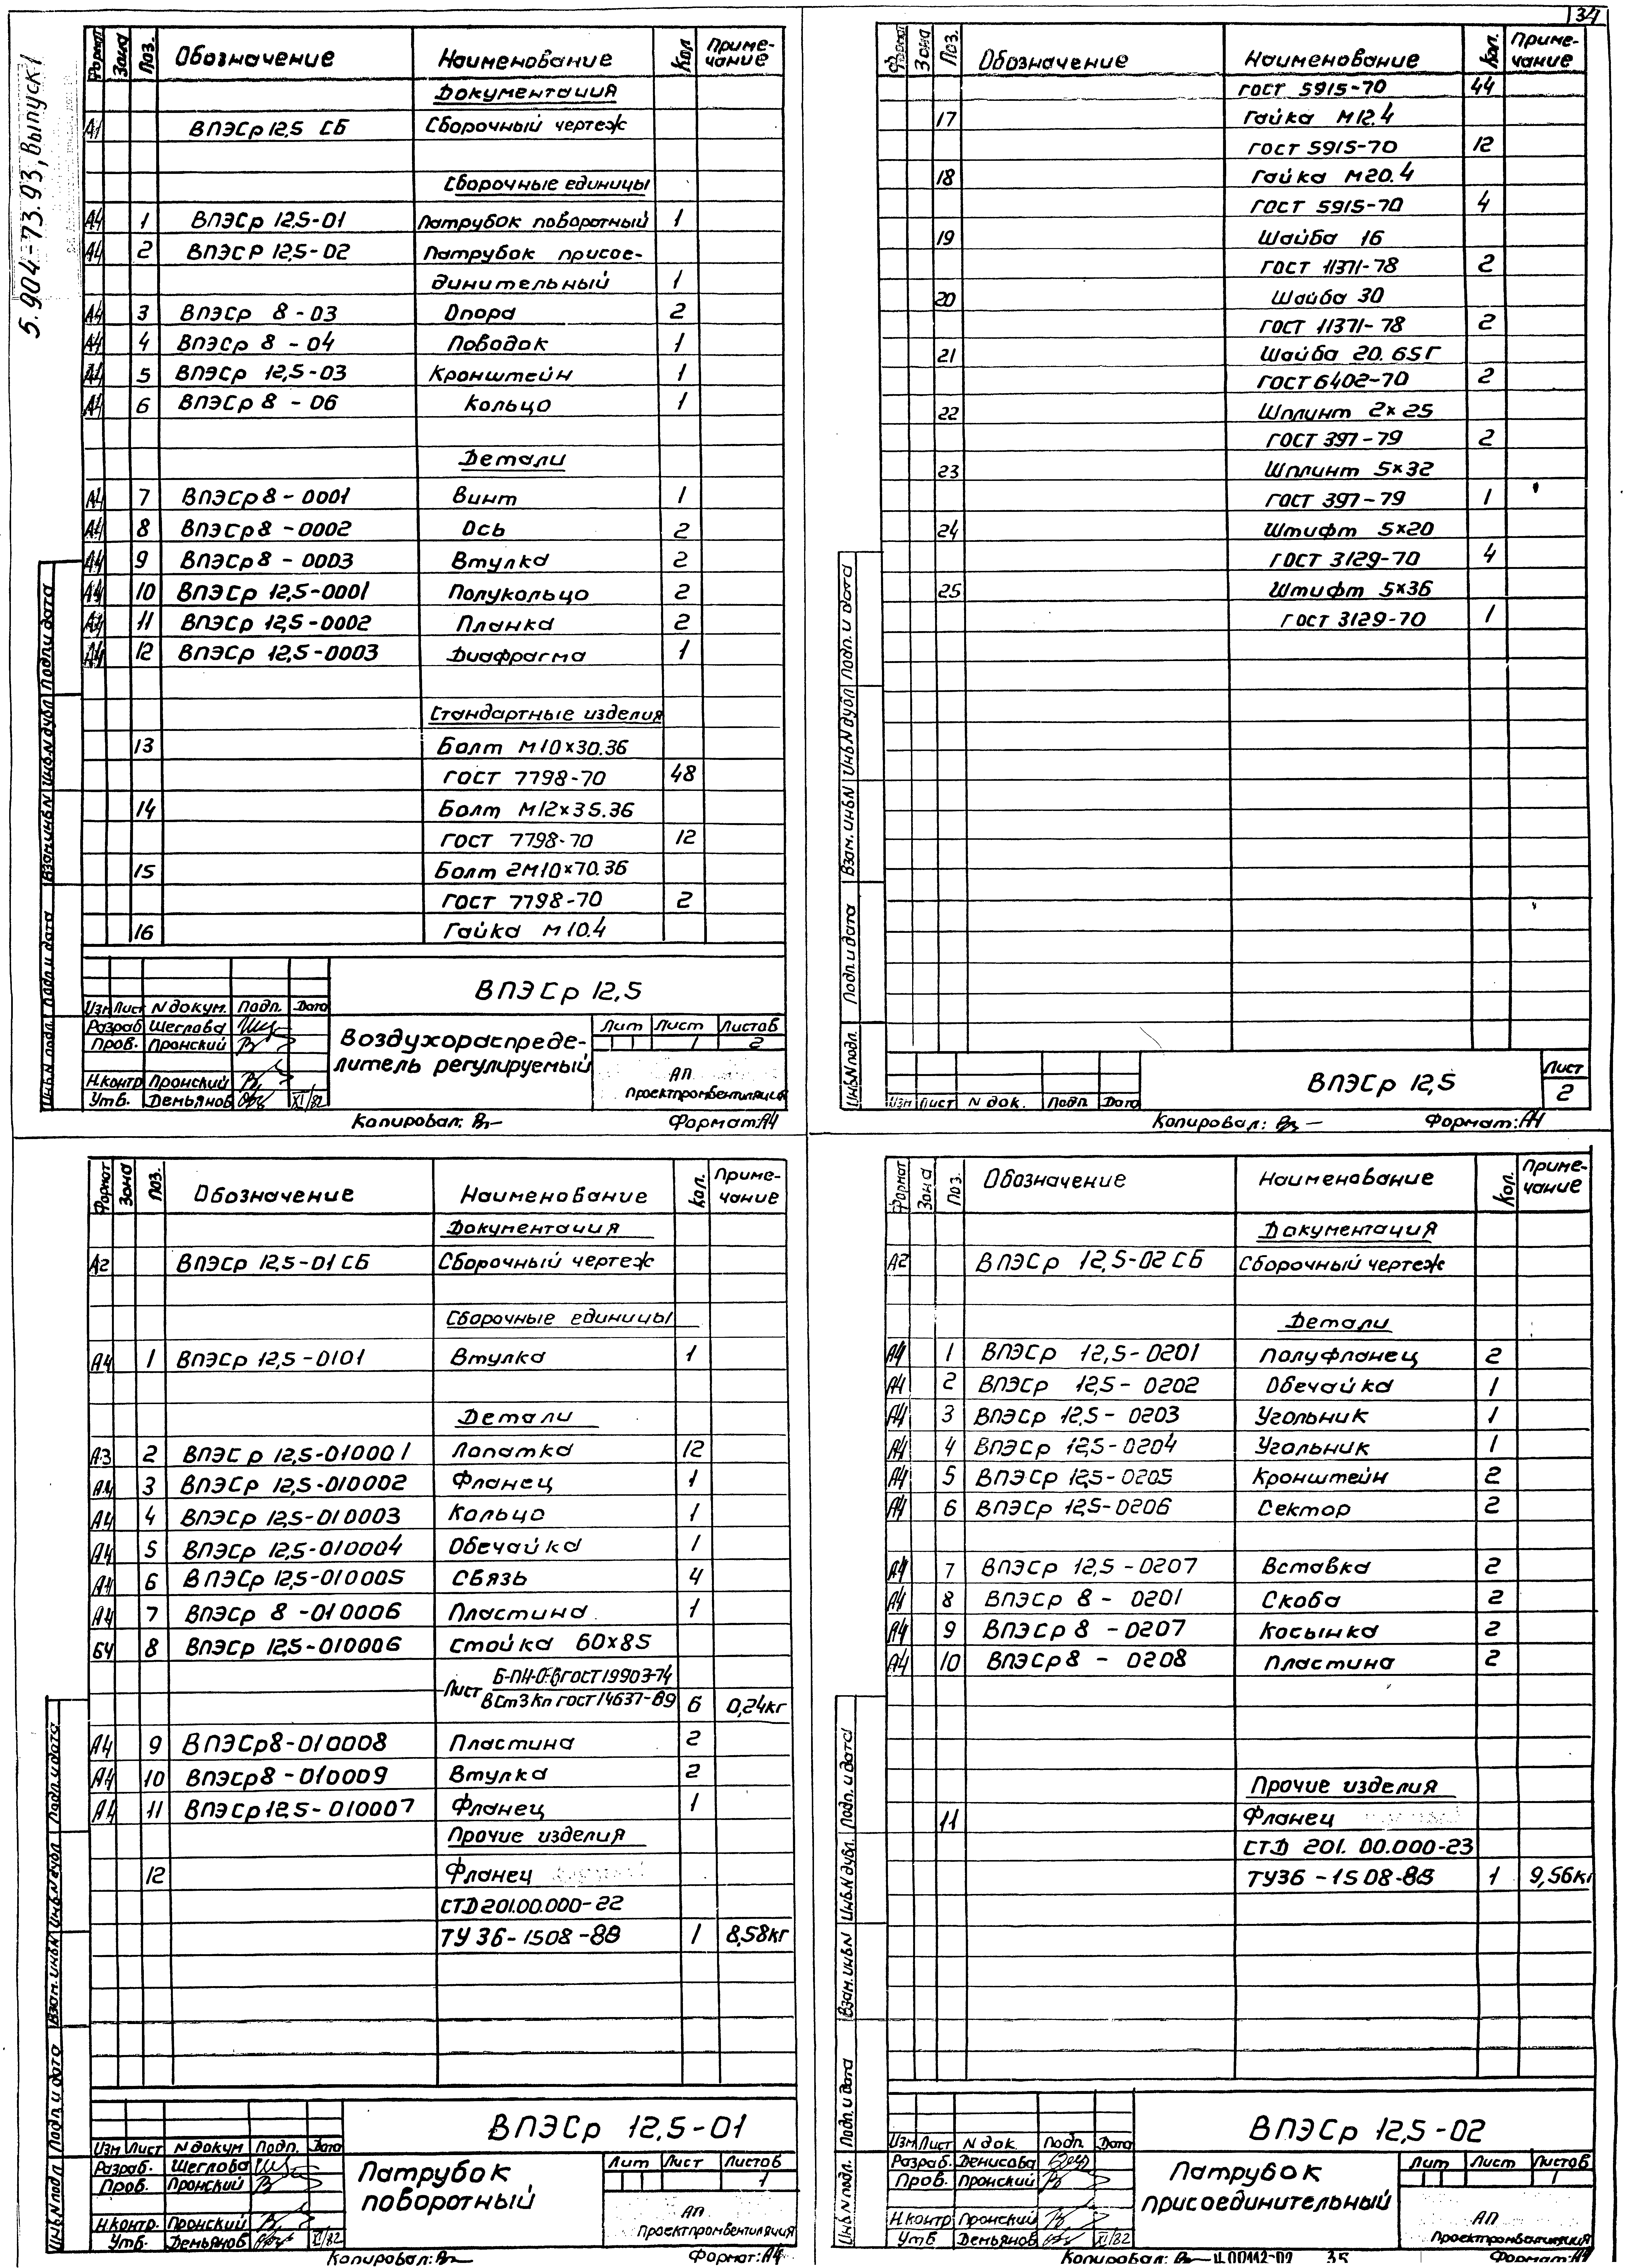 34
5.904-73.93, Выпуск 1
Формат Зона Поз. Обозначение Наименование Кол Приме-
чание
Документация
А1 ВПЭСр 12,5 СБ Сборочный чертеж
Сборочные единицы
А4 1 ВПЭСр 12,5-01 Патрубок поворотный 1
А4 2 ВПЭСр 12,5-02 Патрубок присое-
динительный 1
А4 3 ВПЭСр 8-03 Опора 2
А4 4 ВПЭСр 8-04 Поводок 1
А4 5 ВПЭСр 12,5-03 Кронштейн 1
А4 6 ВПЭСр 8-06 Кольцо 1
Детали
А4 7 ВПЭСр 8-0001 Винт 1
А4 8 ВПЭСр 8-0002 Ось 2
А4 9 ВПЭСр 8-0003 Втулка 2
А4 10 ВПЭСр 12,5-0001 Полукольцо 2
А4 11 ВПЭСр 12,5-0002 Планка 2
А4 12 ВПЭСр 12,5-0003 Диафрагма 1
Стандартные изделия
13 Болт М10×30.36
ГОСТ 7798-70 48
14 Болт М12×35.36
ГОСТ 7798-70 12
15 Болт 2М10×70.36
ГОСТ 7798-70 2
16 Гайка М10.4
ВПЭСр 12,5
Изм Лист N докум. Подп. Дата
Разраб Щеглова
Пров. Пронский
Н.контр Пронский
Утв. Демьянов XI/82
Воздухораспреде-
литель регулируемый
Лит Лист Листов
1 2
АП
Проектпромвентиляция
Инв.N подл. Подп. и дата Взам.инв.N Инв.N дубл Подп.и дата
Копировал: Формат: А4
Формат Зона Поз. Обозначение Наименование Кол. Приме-
чание
ГОСТ 5915-70 44
17 Гайка М12.4
ГОСТ 5915-70 12
18 Гайка М20.4
ГОСТ 5915-70 4
19 Шайба 16
ГОСТ 11371-78 2
20 Шайба 30
ГОСТ 11371-78 2
21 Шайба 20.65Г
ГОСТ 6402-70 2
22 Шплинт 2×25
ГОСТ 397-79 2
23 Шплинт 5×32
ГОСТ 397-79 1
24 Штифт 5×20
ГОСТ 3129-70 4
25 Штифт 5×36
ГОСТ 3129-70 1
Изм Лист N док. Подп Дата
ВПЭСр 12,5
Лист
2
Инв.N подл. Подп. и дата Взам. инв.N Инв.N дубл Подп. и дата
Копировал: Формат: А4
Формат Зона Поз. Обозначение Наименование Кол. Приме-
чание
Документация
А2 ВПЭСр 12,5-01 СБ Сборочный чертеж
Сборочные единицы
А4 1 ВПЭСр 12,5-0101 Втулка 1
Детали
А3 2 ВПЭСр 12,5-010001 Лопатка 12
А4 3 ВПЭСр 12,5-010002 Фланец 1
А4 4 ВПЭСр 12,5-010003 Кольцо 1
А4 5 ВПЭСр 12,5-010004 Обечайка 1
А4 6 ВПЭСр 12,5-010005 Связь 4
А4 7 ВПЭСр 8-010006 Пластина 1
БЧ 8 ВПЭСр 12,5-010006 Стойка 60×85
Лист Б-ПН-О-6 ГОСТ 19903-74
ВСт3Кп ГОСТ 14637-89 6 0,24кг
А4 9 ВПЭСр8-010008 Пластина 2
А4 10 ВПЭСр8-010009 Втулка 2
А4 11 ВПЭСр12,5-010007 Фланец 1
Прочие изделия
12 Фланец
СТД201.00.000-22
ТУ 36-1508-88 1 8,58кг
ВПЭСр 12,5-01
Изм Лист N докум Подп. Дата
Разраб. Щеглова
Пров. Пронский
Н.контр. Пронский
Утв. Демьянов XI/82
Патрубок
поворотный
Лит Лист Листов
1
АП
Проектпромвентиляция
Инв.N подл Подп. и дата Взам.инв.N Инв.N дубл Подп. и дата
Копировал: Формат: А4
Формат Зона Поз. Обозначение Наименование Кол. Приме-
чание
Документация
А2 ВПЭСр 12,5-02 СБ Сборочный чертеж
Детали
А4 1 ВПЭСр 12,5-0201 Полуфланец 2
А4 2 ВПЭСр 12,5-0202 Обечайка 1
А4 3 ВПЭСр 12,5-0203 Угольник 1
А4 4 ВПЭСр 12,5-0204 Угольник 1
А4 5 ВПЭСр 12,5-0205 Кронштейн 2
А4 6 ВПЭСр 12,5-0206 Сектор 2
А4 7 ВПЭСр 12,5-0207 Вставка 2
А4 8 ВПЭСр 8-0201 Скоба 2
А4 9 ВПЭСр 8-0207 Косынка 2
А4 10 ВПЭСр8-0208 Пластина 2
Прочие изделия
11 Фланец
СТД 201.00.000-23
ТУ36-1508-88 1 9,56кг
ВПЭСр 12,5-02
Изм Лист N док. Подп. Дата
Разраб. Денисова
Пров. Пронский
Н.контр Пронский
Утв Демьянов XI/82
Патрубок
присоединительный
Лит Лист Листов
1
АП
Проектпромвентиляция
Инв.N подл. Подп. и дата Взам.инв.N Инв.N дубл. Подп. и дата
Копировал: Ц00112-02 35 Формат: А4